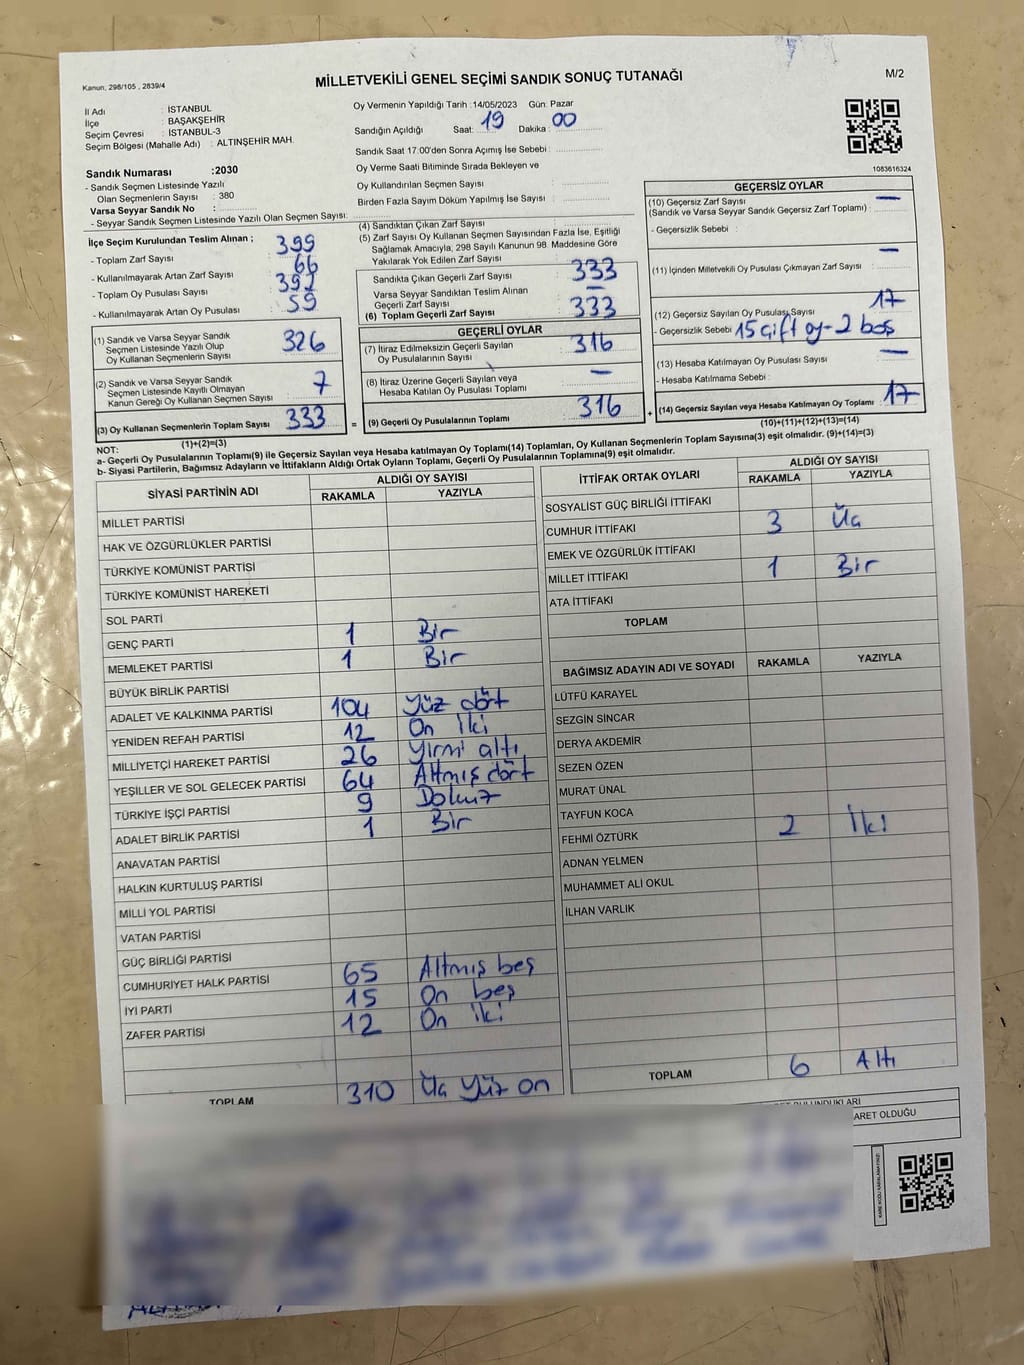 Kanun, 298/105 , 2839/4
MİLLETVEKİLİ GENEL SEÇİMİ SANDIK SONUÇ TUTANAĞI
M/2
İl Adı : İSTANBUL
İlçe : BAŞAKŞEHİR
Seçim Çevresi : İSTANBUL-3
Seçim Bölgesi (Mahalle Adı) : ALTINŞEHİR MAH.
Sandık Numarası :2030
- Sandık Seçmen Listesinde Yazılı
Olan Seçmenlerin Sayısı : 380
Varsa Seyyar Sandık No :
- Seyyar Sandık Seçmen Listesinde Yazılı Olan Seçmen Sayısı:
Oy Vermenin Yapıldığı Tarih :14/05/2023 Gün: Pazar
Sandığın Açıldığı Saat: 19 Dakika : 00
Sandık Saat 17:00'den Sonra Açmış İse Sebebi :
Oy Verme Saati Bitiminde Sırada Bekleyen ve
Oy Kullandırılan Seçmen Sayısı
Birden Fazla Sayım Döküm Yapılmış İse Sayısı :
1083616324
İlçe Seçim Kurulundan Teslim Alınan ;
- Toplam Zarf Sayısı : 399
- Kullanılmayarak Artan Zarf Sayısı : 66
- Toplam Oy Pusulası Sayısı : 392
- Kullanılmayarak Artan Oy Pusulası : 59
(1) Sandık ve Varsa Seyyar Sandık
Seçmen Listesinde Yazılı Olup
Oy Kullanan Seçmenlerin Sayısı : 326
(2) Sandık ve Varsa Seyyar Sandık
Seçmen Listesinde Kayıtlı Olmayan
Kanun Gereği Oy Kullanan Seçmen Sayısı : 7
(3) Oy Kullanan Seçmenlerin Toplam Sayısı : 333
(1)+(2)=(3)
(4) Sandıktan Çıkan Zarf Sayısı
(5) Zarf Sayısı Oy Kullanan Seçmen Sayısından Fazla İse, Eşitliği
Sağlamak Amacıyla, 298 Sayılı Kanunun 98. Maddesine Göre
Yakılarak Yok Edilen Zarf Sayısı :
Sandıkta Çıkan Geçerli Zarf Sayısı : 333
Varsa Seyyar Sandıktan Teslim Alınan
Geçerli Zarf Sayısı : —
(6) Toplam Geçerli Zarf Sayısı : 333
GEÇERLİ OYLAR
(7) İtiraz Edilmeksizin Geçerli Sayılan
Oy Pusulalarının Sayısı : 316
(8) İtiraz Üzerine Geçerli Sayılan veya
Hesaba Katılan Oy Pusulası Toplamı : —
= (9) Geçerli Oy Pusulalarının Toplamı : 316 +
GEÇERSİZ OYLAR
(10) Geçersiz Zarf Sayısı
(Sandık ve Varsa Seyyar Sandık Geçersiz Zarf Toplamı) : —
- Geçersizlik Sebebi :
(11) İçinden Milletvekili Oy Pusulası Çıkmayan Zarf Sayısı : —
(12) Geçersiz Sayılan Oy Pusulası Sayısı : 17
- Geçersizlik Sebebi : 15 Çift oy - 2 boş
(13) Hesaba Katılmayan Oy Pusulası Sayısı : —
- Hesaba Katılmama Sebebi :
(14) Geçersiz Sayılan veya Hesaba Katılmayan Oy Toplamı : 17
(10)+(11)+(12)+(13)=(14)
NOT:
a- Geçerli Oy Pusulalarının Toplamı(9) ile Geçersiz Sayılan veya Hesaba katılmayan Oy Toplamı(14) Toplamları, Oy Kullanan Seçmenlerin Toplam Sayısına(3) eşit olmalıdır. (9)+(14)=(3)
b- Siyasi Partilerin, Bağımsız Adayların ve İttifakların Aldığı Ortak Oyların Toplamı, Geçerli Oy Pusulalarının Toplamına(9) eşit olmalıdır.
SİYASİ PARTİNİN ADI ALDIĞI OY SAYISI
RAKAMLA YAZIYLA
MİLLET PARTİSİ
HAK VE ÖZGÜRLÜKLER PARTİSİ
TÜRKİYE KOMÜNİST PARTİSİ
TÜRKİYE KOMÜNİST HAREKETİ
SOL PARTİ
GENÇ PARTİ 1 Bir
MEMLEKET PARTİSİ 1 Bir
BÜYÜK BİRLİK PARTİSİ
ADALET VE KALKINMA PARTİSİ 104 Yüz dört
YENİDEN REFAH PARTİSİ 12 On İki
MİLLİYETÇİ HAREKET PARTİSİ 26 Yirmi altı
YEŞİLLER VE SOL GELECEK PARTİSİ 64 Altmış dört
TÜRKİYE İŞÇİ PARTİSİ 9 Dokuz
ADALET BİRLİK PARTİSİ 1 Bir
ANAVATAN PARTİSİ
HALKIN KURTULUŞ PARTİSİ
MİLLİ YOL PARTİSİ
VATAN PARTİSİ
GÜÇ BİRLİĞİ PARTİSİ
CUMHURİYET HALK PARTİSİ 65 Altmış beş
İYİ PARTİ 15 On beş
ZAFER PARTİSİ 12 On iki
TOPLAM 310 Üç Yüz on
İTTİFAK ORTAK OYLARI ALDIĞI OY SAYISI
RAKAMLA YAZIYLA
SOSYALİST GÜÇ BİRLİĞİ İTTİFAKI
CUMHUR İTTİFAKI 3 Üç
EMEK VE ÖZGÜRLÜK İTTİFAKI
MİLLET İTTİFAKI 1 Bir
ATA İTTİFAKI
TOPLAM
BAĞIMSIZ ADAYIN ADI VE SOYADI RAKAMLA YAZIYLA
LÜTFÜ KARAYEL
SEZGİN SİNCAR
DERYA AKDEMİR
SEZEN ÖZEN
MURAT ÜNAL
TAYFUN KOCA
FEHMİ ÖZTÜRK 2 İki
ADNAN YELMEN
MUHAMMET ALİ OKUL
İLHAN VARLIK
TOPLAM 6 Altı
BULUNDUKLARI
ARET OLDUĞU